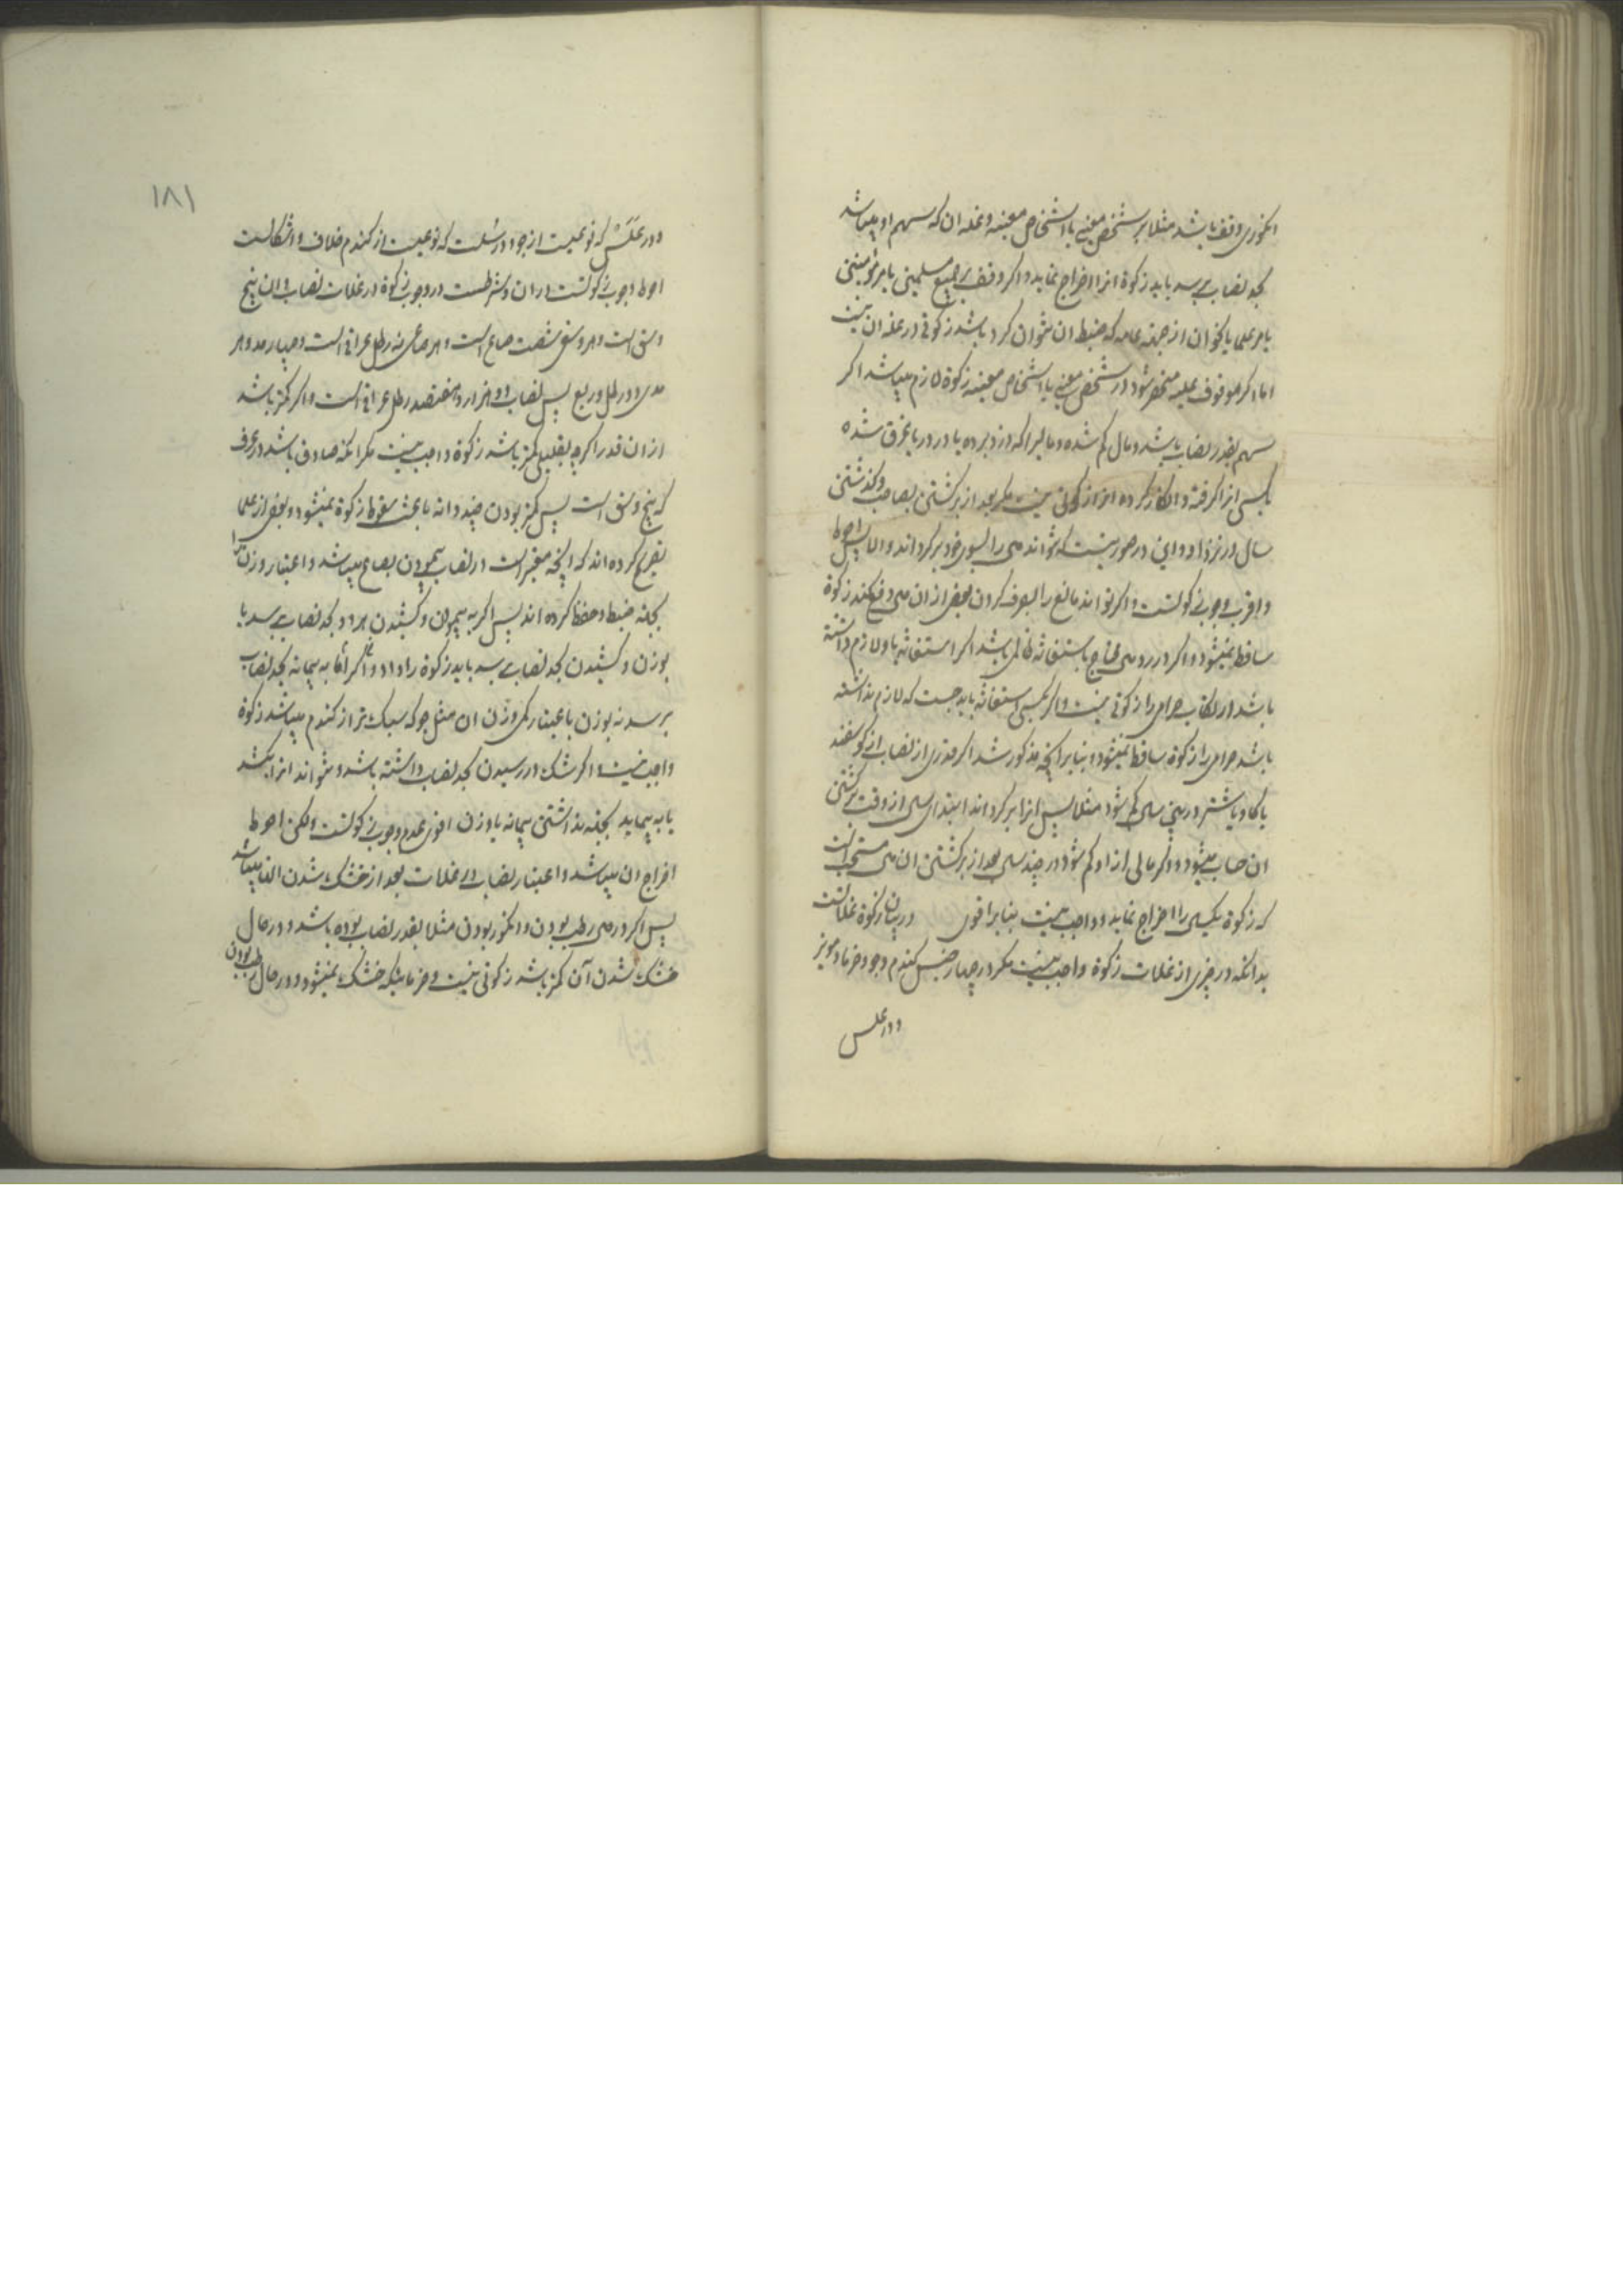 انکوری وقف باشد مثلا بر شخص معینی یا اشخاص معینه و غله ان که سهم او میباشد
بحد نصاب برسد باید زکوة انرا اخراج نماید و اکر وقف بر جمیع مسلمین یا بر مؤمنین
یا بر علما یا نحو ان از جهة عامه که ضبط ان نتوان کرد باشد زکوتی در غله ان نیست
اما اکر موقوف علیه منحصر شود در شخص معینی یا اشخاص معینه زکوة لازم میباشد اکر
سهم بقدر نصاب باشد و مال کم شده و مالیرا که دزد برده یا در دریا غرق شده
یا کسی انرا کرفته و انکار کرده انرا زکوتی نیست مکر بعد از برکشتن بصاحب و کذشتن
سال در نزد او و این در صورتیست که نتواند می را بسوی خود برکرداند و الا پس احوط
و اقرب وجوب زکوتست و اکر تواند مانع را بصرف کردن بعض از ان می دفع کند زکوة
ساقط نمیشود و اکر در رد می محتاج باستغاثه ظالمی باشد اکر استغاثه باو لازم داشته
باشد ارتکاب حرامی را زکوتی نیست و اکر بکسی استغاثه باید جست که لازم نداشته
باشد حرامی را زکوة ساقط نمیشود و بنا بر انچه مذکور شد اکر قدری از نصاب از کوسفند
یا کاو یا شتر در بین سال کم شود مثلا پس انرا برکرداند ابتدای سال از وقت برکشتن
ان حساب میشود و اکر مالی از او کم شود در چند سال بعد از برکشتن ان می مستحب است
که زکوة یکسال را اخراج نماید و واجب نیست بنا بر اقوی در بیان زکوة غلاتست
بدانکه در چیزی از غلات زکوة واجب نیست مکر در چهار جنس کندم و جو و خرما و مویز
و در علس
۱۸۱
و در عَلَس که نوعیست از جو و در سُلت که نوعیست از کندم خلاف و اشکالست
احوط وجوب زکوتست در ان و شرطست در وجوب زکوة در غلات نصاب و ان پنج
وسق است و هر وسق شصت صاع است و هر صاعی نه رطل عراقی است و چهار مد و هر
مدی دو رطل و ربع پس نصاب دو هزار و هفتصد رطل عراقی است و اکر کمتر باشد
از ان قدر اکرچه بقلیلی کمتر باشد زکوة واجب نیست مکر انکه صادق باشد در عرف
که پنج وسق است پس کمتر بودن چند دانه باعث سقوط زکوة نمیشود و بعض از علما
تصریح کرده اند که انچه معتبر است در نصاب پیمودن بصاع میباشد و اعتبار وزن را
بجهة ضبط و حفظ کرده اند پس اکر به پیمودن و کشیدن هر دو بحد نصاب برسد یا
بوزن و کشیدن بحد نصاب برسد باید زکوة را داد و اکر به پیمانه بحد نصاب
برسد نه بوزن باعتبار کمی وزن ان مثل جو که سبک تر از کندم میباشد زکوة
واجب نیست و اکر شک در رسیدن بحد نصاب داشته باشد و نتواند انرا بکشد
یا به پیماید بجهة نداشتن پیمانه یا وزن اقوی عدم وجوب زکوتست ولکن احوط
اخراج ان میباشد و اعتبار نصاب در غلات بعد از خشک شدن انها میباشد
پس اکر در حال رطب بودن و انکور بودن مثلا بقدر نصاب بوده باشد و در حال
خشک شدن آن کمتر باشد زکوتی نیست و خرمائیکه خشک نمیشود و در حال رطب بودن